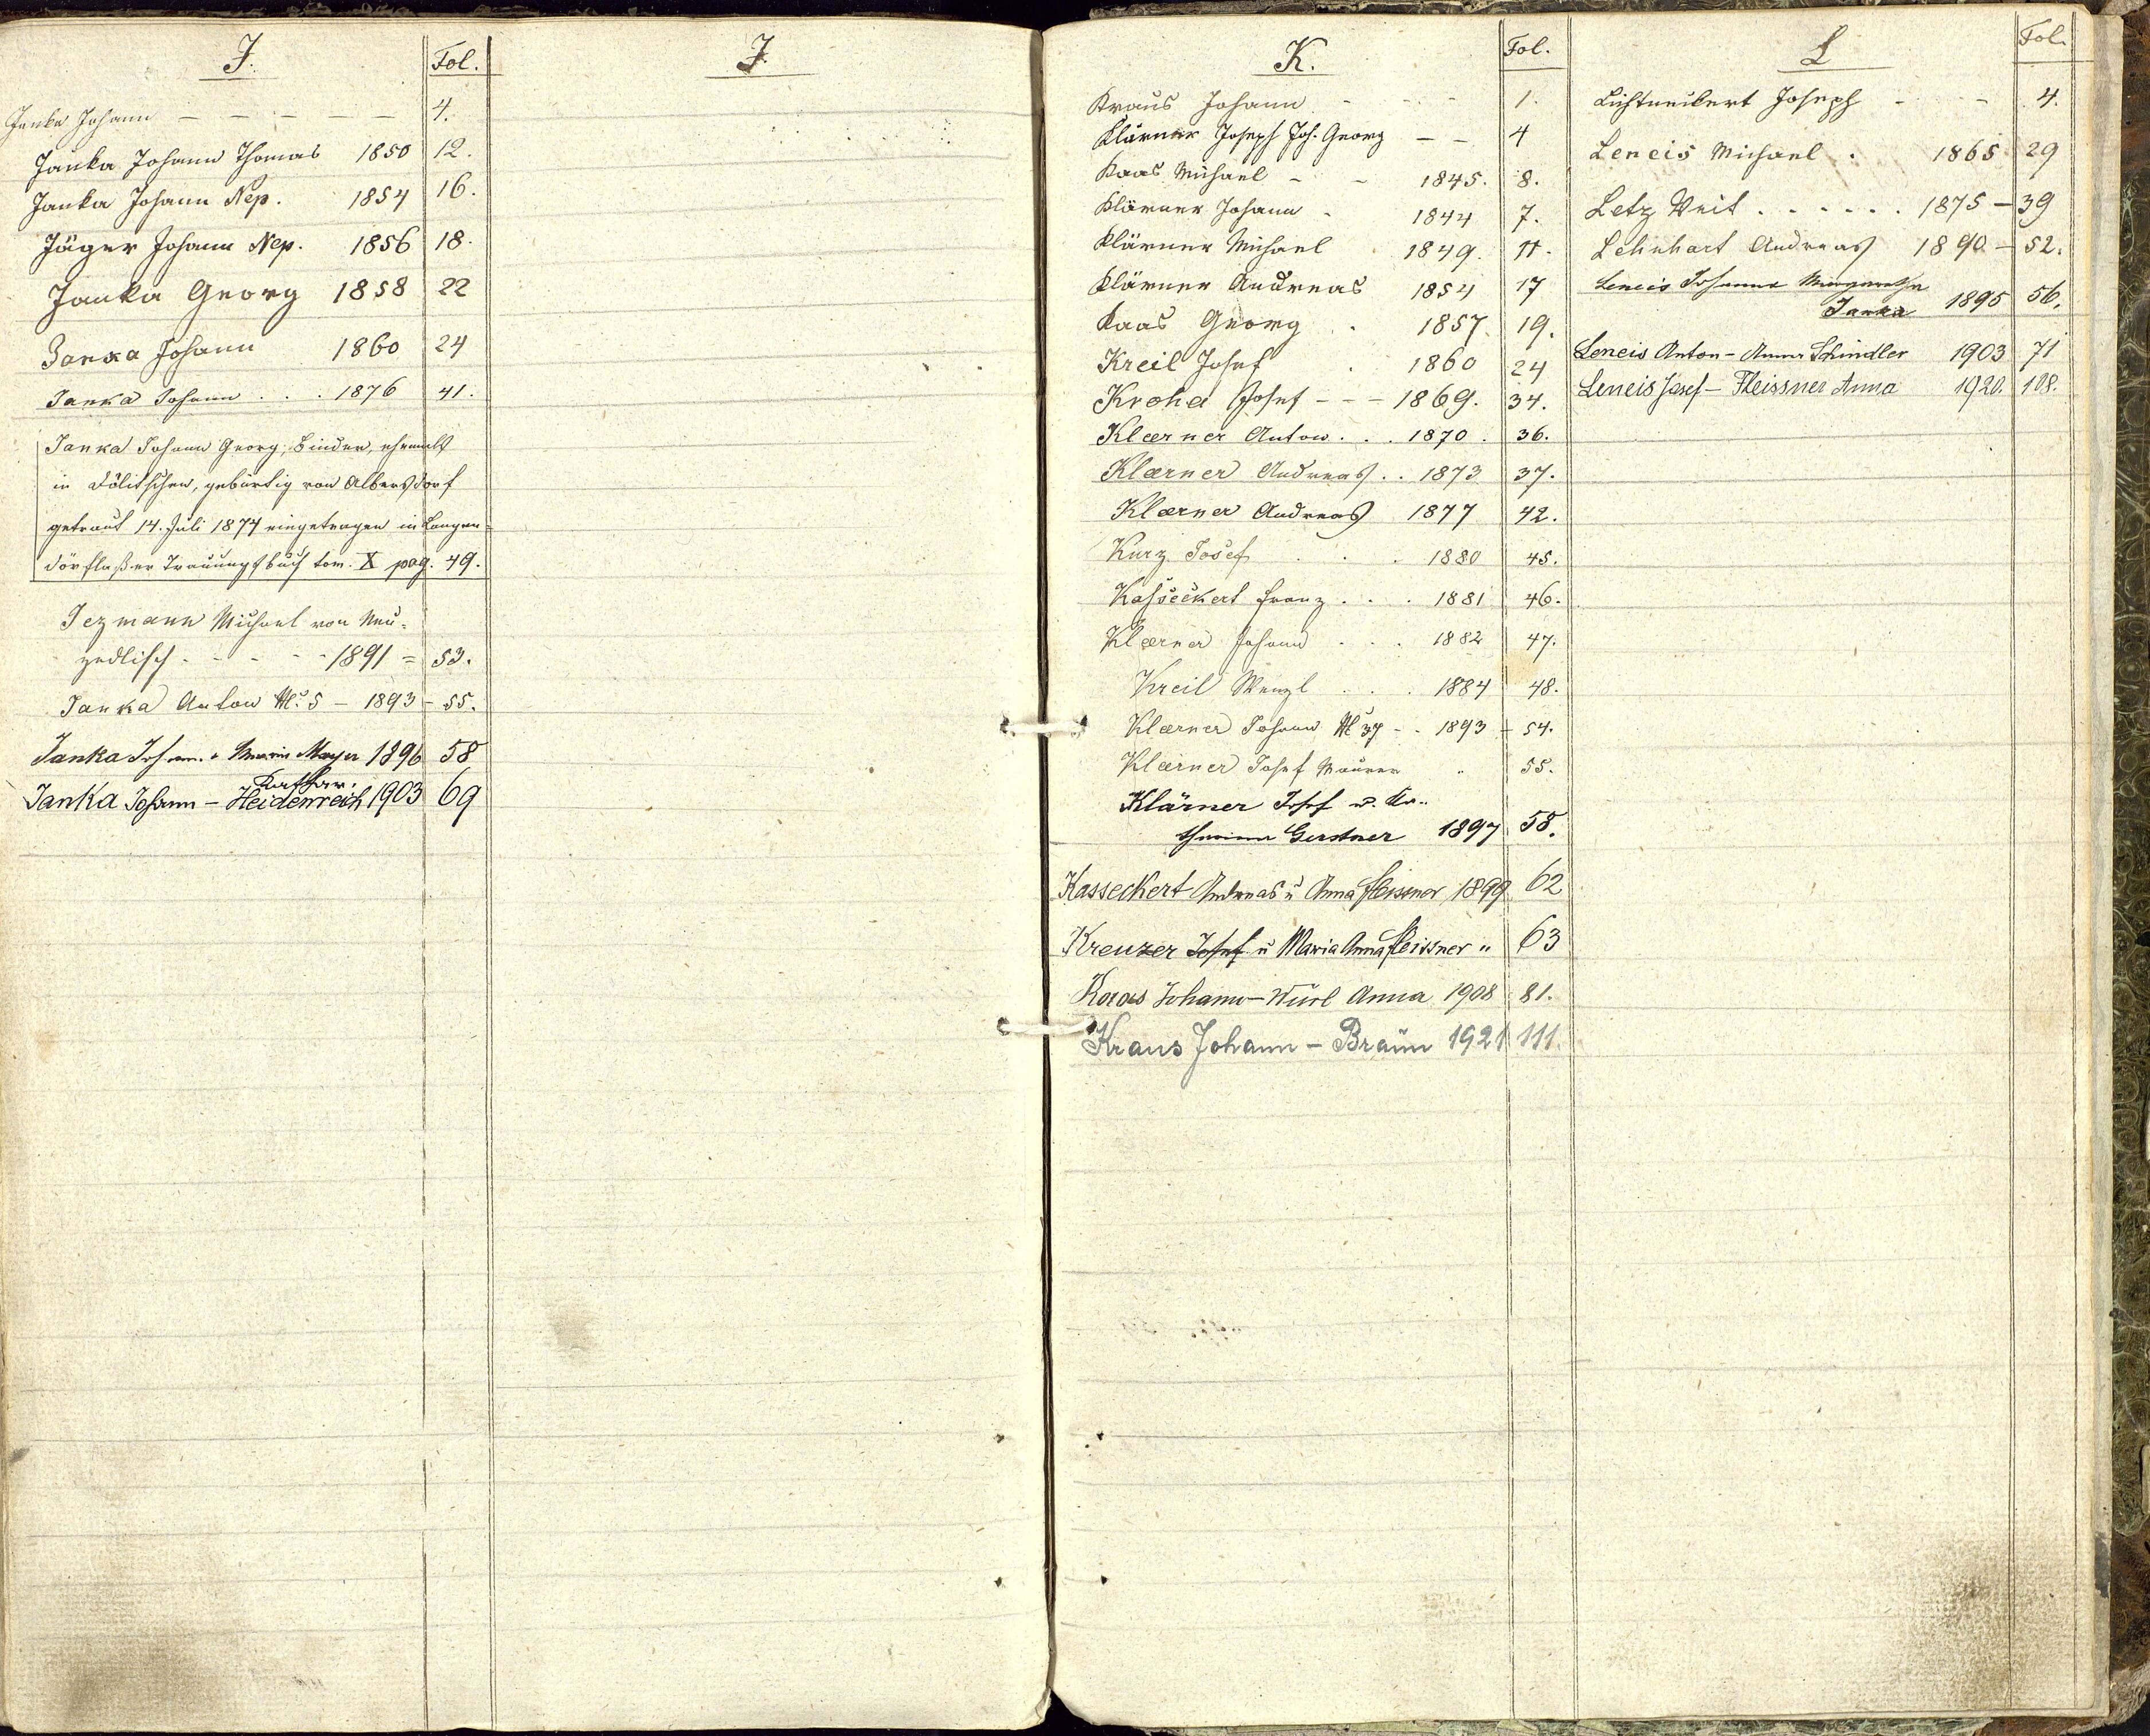 J. Fol.
Janka Johann - - - - - 4.
Janka Johann Thomas 1850 12.
Janka Johann Nep. 1854 16.
Jäger Johann Nep. 1856 18.
Janka Georg 1858 22
Janka Johann 1860 24
Janka Johann . . . 1876 41.
Janka Johann Georg, Binder, ehemals
in Dölitschen, gebürtig von Albersdorf
getraut 14. Juli 1874 eingetragen in Langen=
dörflaßer Trauungsbuch tom. X pag. 49.
Jezmann Michael von Neu=
zedlisch - - - - - 1891 = 53.
Janka Anton No. 5 - 1893 - 55.
Janka Johann. + Marie Mayer 1896 58
Kathar.
Janka Johann - Heidenreich 1903 69
J.
K. Fol.
Kraus Johann - - - - 1.
Klärner Joseph Joh. Georg - - 4
Kaas Michael - - 1845. 8.
Klärner Johann - 1844 7.
Klärner Michael 1849. 11.
Klärner Andreas 1854 17
Kaas Georg . 1857. 19.
Kreil Josef . 1860 24
Kroha Josef - - - 1869. 34.
Klærner Anton. . . 1870. 36.
Klærner Andreas. . . 1873 37.
Klærner Andreas 1877 42.
Kurz Josef . . . 1880 45.
Kasseckert Franz . . . 1881 46.
Klærner Johann . . . 1882 47.
Kreil Wenzl . . . 1884 48.
Klærner Johann No 37 - - 1893 - 54.
Klærner Josef Maurer " 55.
Klärner Josef u. Ka-
tharina Gerstner 1897 58.
Kasseckert Andreas u Anna Fleissner 1899 62
Kreuzer Josef u Maria Anna Fleissner " 63
Kaas Johann - Würl Anna 1908 81.
Kraus Johann - Braun 1921 111.
L Fol.
Lichtneckert Joseph - - 4.
Leneis Michael . 1865 29
Letz Veit . . . . . . 1875 - 39
Lehnhart Andreas 1890 - 52.
Leneis Johann Margaretha
Janka 1895 56.
Leneis Anton - Anna Schindler 1903 71
Leneis Josef - Fleissner Anna 1920. 108.